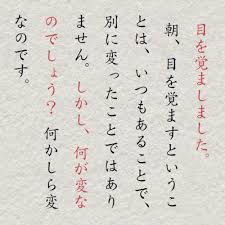 目を覚ましました。
朝、目を覚ますというこ
とは、いつもあることで、
別に変ったことではあり
ません。しかし、何が変な
のでしょう？何かしら変
なのです。